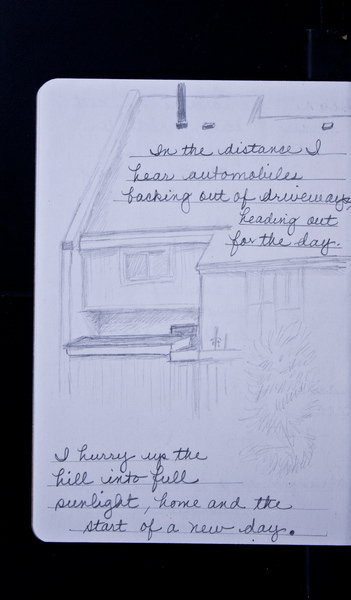 In the distance I
hear automobiles
backing out of driveways,
heading out
for the day.
I hurry up the
hill into full
sunlight, home and the
start of a new day.